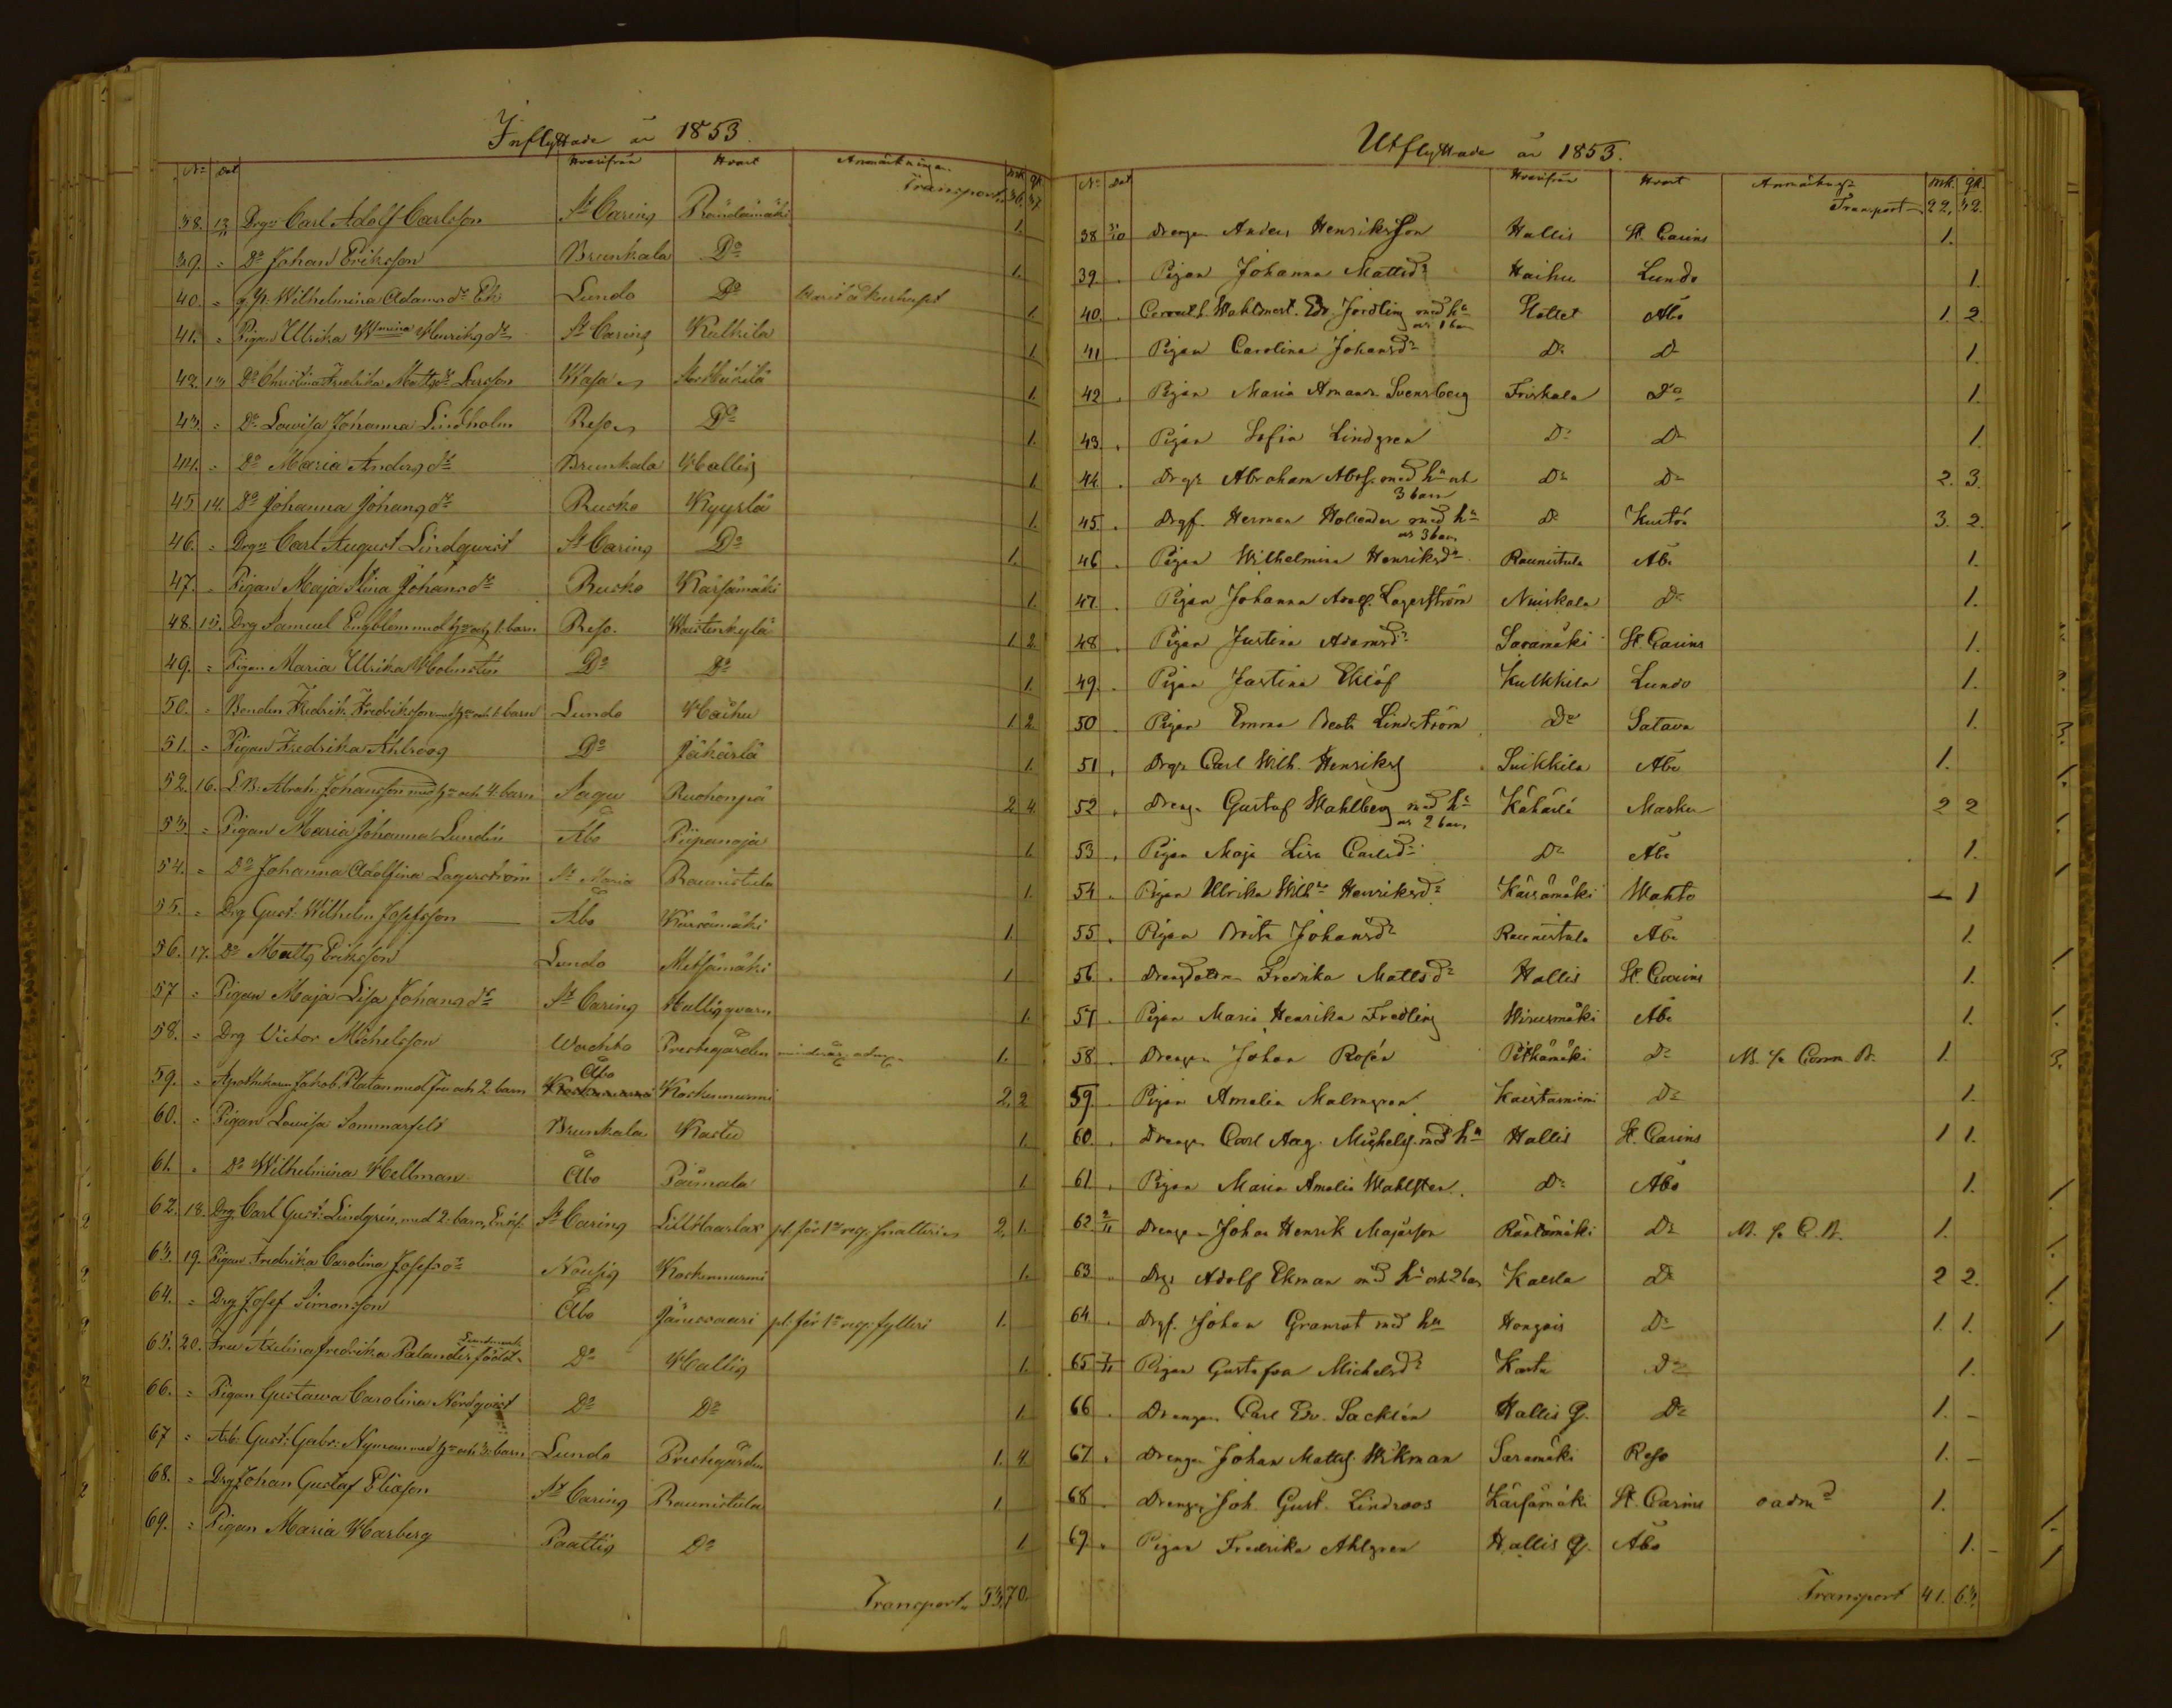 Inflyttade år 1853.
No Dat Hvarifrån Hvart Anmärkningar mk. qk.
Transport. 36. 37.
38. 13/11 Drgn Carl Adolf Carlsson St Carins Räntämäki 1.
39. " Do Johan Eriksson Brunkala Do 1.
40. " Wilhelmina Adamsdr Ek Lundo Do 1.
41. " Pigan Ulrika Wmina Henriksdr St Carins Kulkila 1.
42. 13 Do Christina Fredrika Mattsdr Larsson Wasa 1.
43. " Do Lovisa Johanna Lindholm Reso Do 1.
44. " Do Maria Andersdr Brunkala Hallis 1.
45. 14. Do Johanna Johansdr Rusko Kyyrlä 1.
46. " Drgn Carl August Lindqvist St Carins Do 1.
47. " Pigan Maja Stina Johansdr Rusko Kärsämäki 1.
48. 15. Drg Samuel Engblom med h:u och 1. barn Reso. Waistenkylä 1. 2.
49. " Pigan Maria Ulrika Holmstén Do Do 1.
50. " Bonden Fredrik Fredriksson med h:u och 1. barn Lundo Haihu 1. 2.
51. " Pigan Fredrika Ahlroos Do Jäkärlä 1.
52. 16. L.B. Abrah. Johansson med h:u och 4. barn Sagu Ruohonpä 2. 4.
53. " Pigan Maria Johanna Lundén Åbo Piipanoja 1.
54. " Do Johanna Adolfina Lagerström St Maria Raunistula 1.
55. " Drg Gust. Wilhelm Josefsson Åbo Kärsämäki 1.
56. 17. Do Matts Eriksson Lundo Metsämäki 1.
57 " Pigan Maja Lisa Johansdr St Carins Hallisqvarn 1.
58. " Drg Victor Michelsson Wachto Prestegården 1.
59. " Apothekaren Jakob Platan med fru och 2 barn Åbo Kockenurmi 2. 2
60. " Pigan Lovisa Sommarfelt Brunkala Kastu 1.
61. " Do Wilhelmina Hellman Åbo Paimala 1.
62. 18. Drg. Carl Gust. Lindgrén, med 2. barn, Enkl. St Carins Lill Haarlax pl. för 1a resg. snatteri 2. 1.
63. 19. Pigan Fredrika Carolina Josefsdr Nousis Kockenurmi 1.
64. " Drg. Josef Simonsson Åbo Jänessaari pl. för 1a resg. fylleri 1.
65. 20. Fru Axelina Fredrika Palander född Lundmark Do Hallis 1.
66. " Pigan Gustawa Carolina Nordqvist Do Do 1.
67 " Arb. Gust. Gabr. Nyman med h:u och 3. barn Lundo Prestegården 1. 4.
68. " Drg Johan Gustaf Eliasson St Carins Raunistula 1
69. " Pigan Maria Harberg Paattis Do 1.
Transport. 53. 70.
Utflyttade år 1853.
No Dat Hvarifrån Hvart Anmärkngr mk. qk.
Transport 22, 32.
38 3/10 Drengen Anders Henriksson Hallis St. Carins 1.
39. . Pigan Johanna Mattsdr Haihu Lundo 1.
40. . Wahlmest. Edv. Jordling med hu o 1 barn Slottet Åbo 1. 2.
41 . Pigan Carolina Johansdr Do Do 1.
42 . Pigan Maria Amanda Svensberg Friskala Do 1.
43 . Pigan Sofia Lindgren Do Do 1.
44 . Drgn Abraham Abrs. med hu och 3 barn Do Do 2. 3.
45 . Drgf. Herman Holender med hu o 3 barn Do Kustö 3. 2.
46 . Pigan Wilhelmina Henriksdr Raunistula Åbo 1.
47. . Pigan Johanna Adolf. Lagerström Nuiskala Do 1.
48 . Pigan Justina Adamsdr Saramäki St. Carins 1.
49. . Pigan Justina Eklöf Kulkkila Lundo 1.
50 . Pigan Emma Beata Lindström Do Satava 1.
51 . Drgn Carl Wilh. Henrikss Suikkila Åbo 1.
52 . Drengn Gustaf Wahlberg med hu o 2 barn Kähärlä Masku 2 2
53 . Pigan Maja Lisa Carlsdr Do Åbo 1.
54 . Pigan Ulrika Wilhna Henriksdr Kärsämäki Wahto – 1
55 . Pigan Brita Johansdr Raunistula Åbo 1.
56 . Fredrika Mattsdr Hallis St. Carins 1.
57 . Pigan Maria Henrika Fredling Wirusmäki Åbo 1.
58 . Drengen Johan Rosén Pitkämäki Do 1.
59. . Pigan Amalia Malmgren Kaistarniemi Do 1.
60. . Drengen Carl Aug. Michels. med hu Hallis St. Carins 1 1.
61 . Pigan Maria Amalia Wahlsten Do Åbo 1.
62 2/11 Drengen Johan Henrik Majasson Räntämäki Do 1.
63 . Drgn Adolf Ekman med hu och 2 barn Kaerla Do 2 2.
64 . Drgf. Johan Granrot med hu Hongois Do 1. 1.
65 7/11 Pigan Gustafva Michelsdr Kastu Do 1.
66 . Drengen Carl Ev. Sacklén Hallis Q. Do 1. –
67 . Drengen Johan Mattss. Wikman Saramäki Reso 1. –
68 . Drengn Joh. Gust. Lindroos Kärsämäki St. Carins oadm 1.
69. . Pigan Fredrika Ahlgren Hallis Q. Åbo 1.
Transport 41. 63.